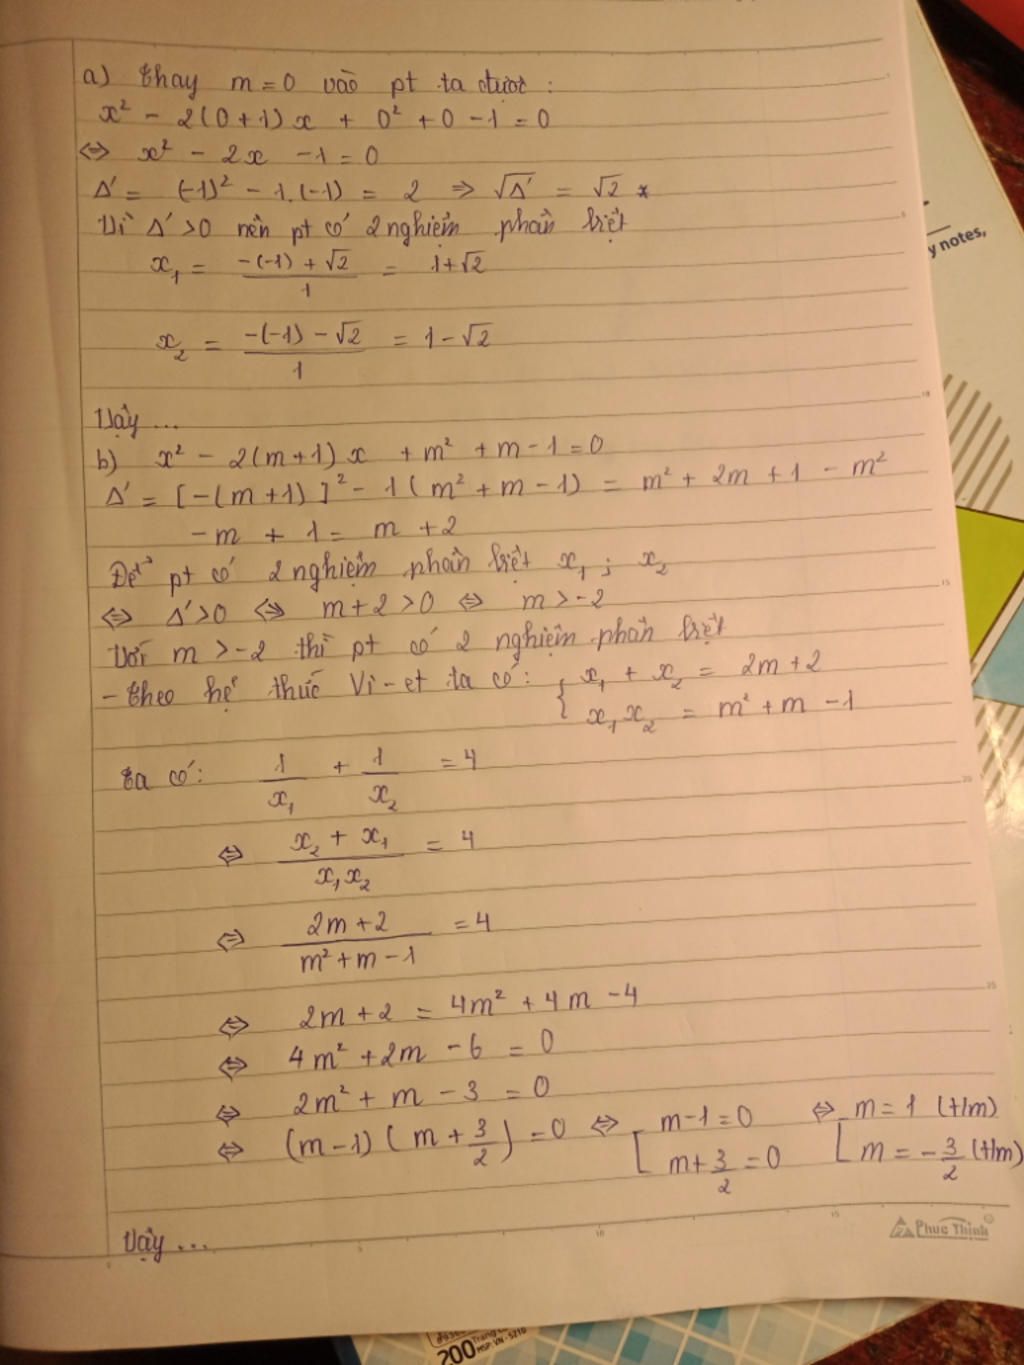 a) thay m = 0 vào pt ta được :
x² - 2(0+1)x + 0² + 0 - 1 = 0
⇔ x² - 2x - 1 = 0
Δ' = (-1)² - 1.(-1) = 2 ⇒ √Δ' = √2 *
Vì Δ' > 0 nên pt có 2 nghiệm phân biệt
x₁ = (-(-1) + √2)/1 = 1+√2
x₂ = (-(-1) - √2)/1 = 1-√2
Vậy ...
b) x² - 2(m+1)x + m² + m - 1 = 0
Δ' = [-(m+1)]² - 1(m² + m - 1) = m² + 2m + 1 - m²
- m + 1 = m + 2
Để pt có 2 nghiệm phân biệt x₁ ; x₂
⇔ Δ' > 0 ⇔ m + 2 > 0 ⇔ m > -2
Với m > -2 thì pt có 2 nghiệm phân biệt
- theo hệ thức Vi-et ta có : { x₁ + x₂ = 2m + 2
x₁x₂ = m² + m - 1
ta có : 1/x₁ + 1/x₂ = 4
⇔ (x₂ + x₁)/(x₁x₂) = 4
⇔ (2m + 2)/(m² + m - 1) = 4
⇔ 2m + 2 = 4m² + 4m - 4
⇔ 4m² + 2m - 6 = 0
⇔ 2m² + m - 3 = 0
⇔ (m-1)(m + 3/2) = 0 ⇔ [ m-1 = 0 ⇔ [ m = 1 (t/m)
m + 3/2 = 0 m = -3/2 (t/m)
Vậy ...
Phuc Thinh
y notes,
200
Trang
MSP: VN - 5210